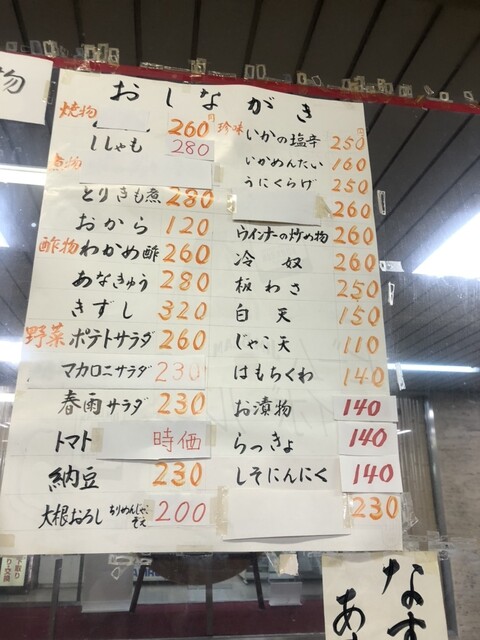 物
おしながき
焼物
260円
ししゃも 280
煮物
とりきも煮 280
おから 120
酢物 わかめ酢 260
あなきゅう 280
きずし 320
野菜 ポテトサラダ 260
マカロニサラダ 230
春雨サラダ 230
トマト 時価
納豆 230
大根おろし ちりめんじゃこ そえ 200
珍味 いかの塩辛 250円
いかめんたい 160
うにくらげ 250
260
ウインナーの炒め物 260
冷奴 260
板わさ 250
白天 150
じゃこ天 110
はもちくわ 140
お漬物 140
らっきょ 140
しそにんにく 140
230
な
あ